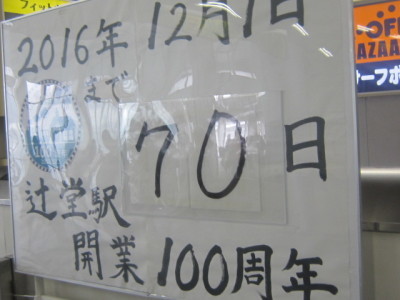 フィット
2016年 12月1日
まで
70日
辻堂駅
開業 100周年
OFF
AZAA
ーフボ